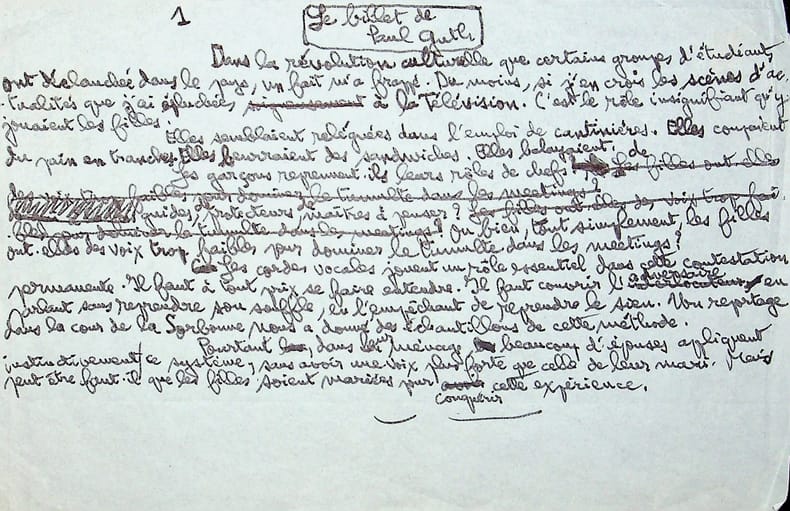 1
Le billet de
Paul Guth
Dans la révolution culturelle que certains groupes d'étudiants
ont déclanchée dans le pays, un fait m'a frappé. Du moins, si j'en crois les scènes d'ac-
tualités que j'ai épluchées, à la Télévision. C'est le rôle insignifiant qu'y
jouaient les filles.
Elles semblaient reléguées dans l'emploi de cantinières. Elles coupaient
du pain en tranches. Elles beurraient des sandwiches. Elles balayaient.
Les garçons reprennent-ils leurs rôles de chefs, de les filles ont-elles
des voix trop faibles pour dominer le tumulte dans les meetings?
guides, protecteurs, maîtres à penser? Les filles ont-elles des voix trop fai-
bles pour dominer le tumulte dans les meetings? Ou bien, tout simplement, les filles
ont-elles des voix trop faibles pour dominer le tumulte dans les meetings?
Les cordes vocales jouent un rôle essentiel dans cette contestation
permanente. Il faut à tout prix se faire entendre. Il faut couvrir l'interlocuteur adversaire, en
parlant sans reprendre son souffle, en l'empêchant de reprendre le sien. Un reportage
dans la cour de la Sorbonne nous a donné des échantillons de cette méthode.
Pourtant dans leur ménage beaucoup d'épouses appliquent
instinctivement ce système, sans avoir une voix plus forte que celle de leur mari. Mais
peut-être faut-il que les filles soient mariées pour avoir cette expérience.
conquérir